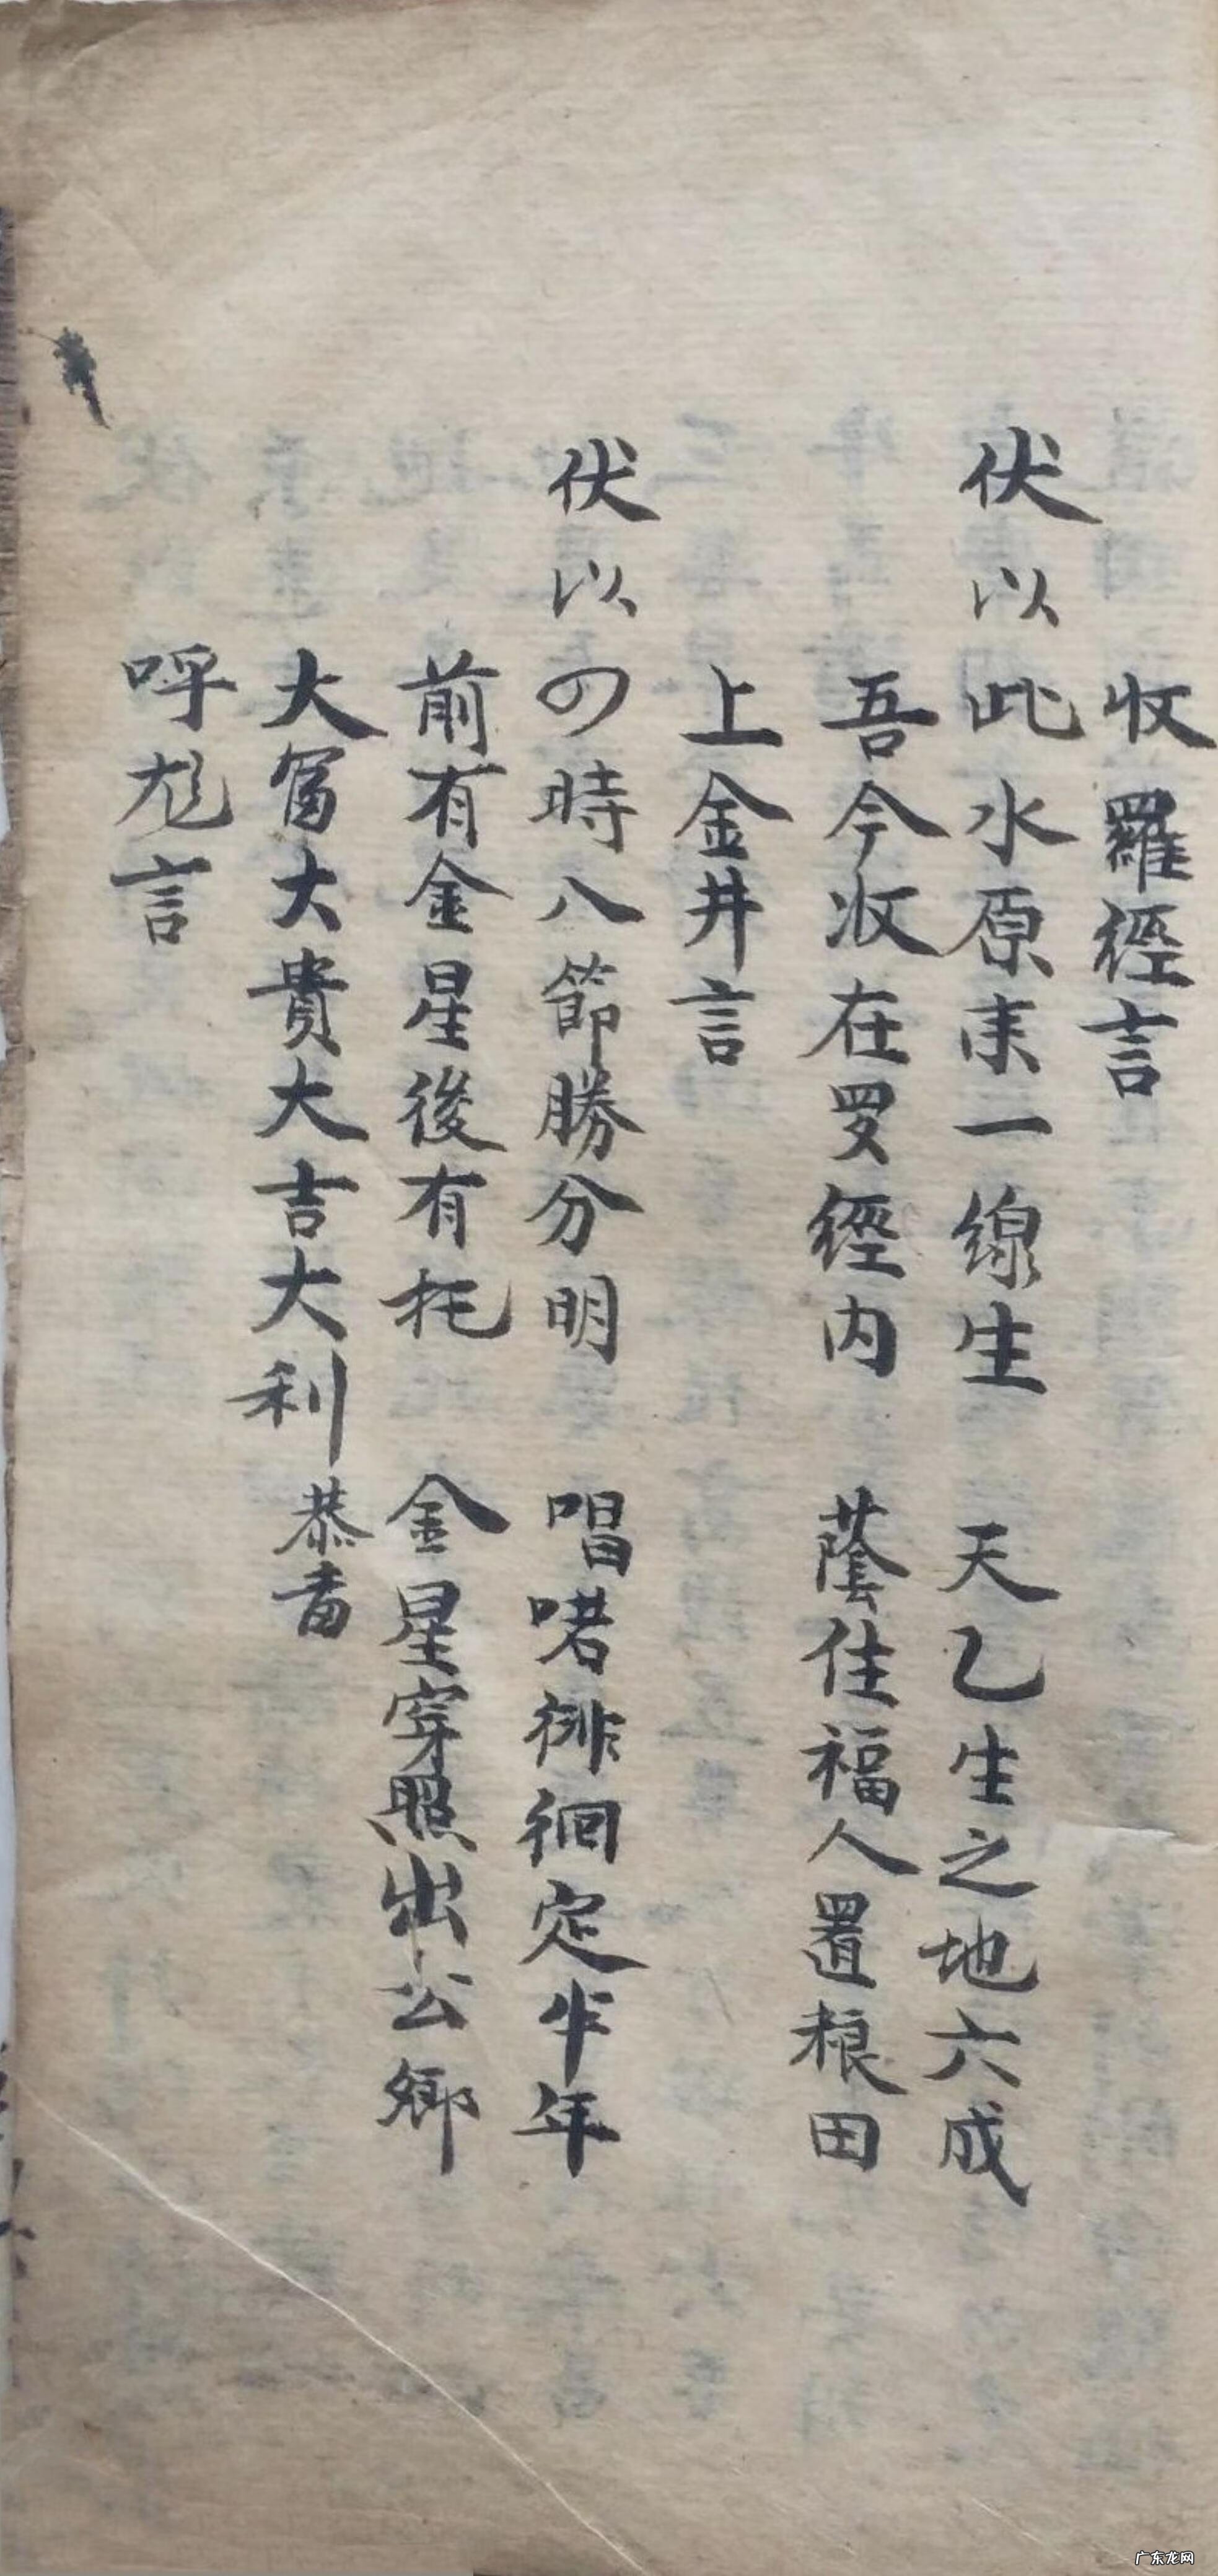 收羅經言
伏以此水原来一線生 天乙生之地六成
吾今收在罗經内 蔭住福人置粮田
上金井言
伏以四時八節勝分明 唱喏徘徊定半年
前有金星後有托 金星穿照出公卿
大富大貴大吉大利 恭喜
呼龙言
广东龙网